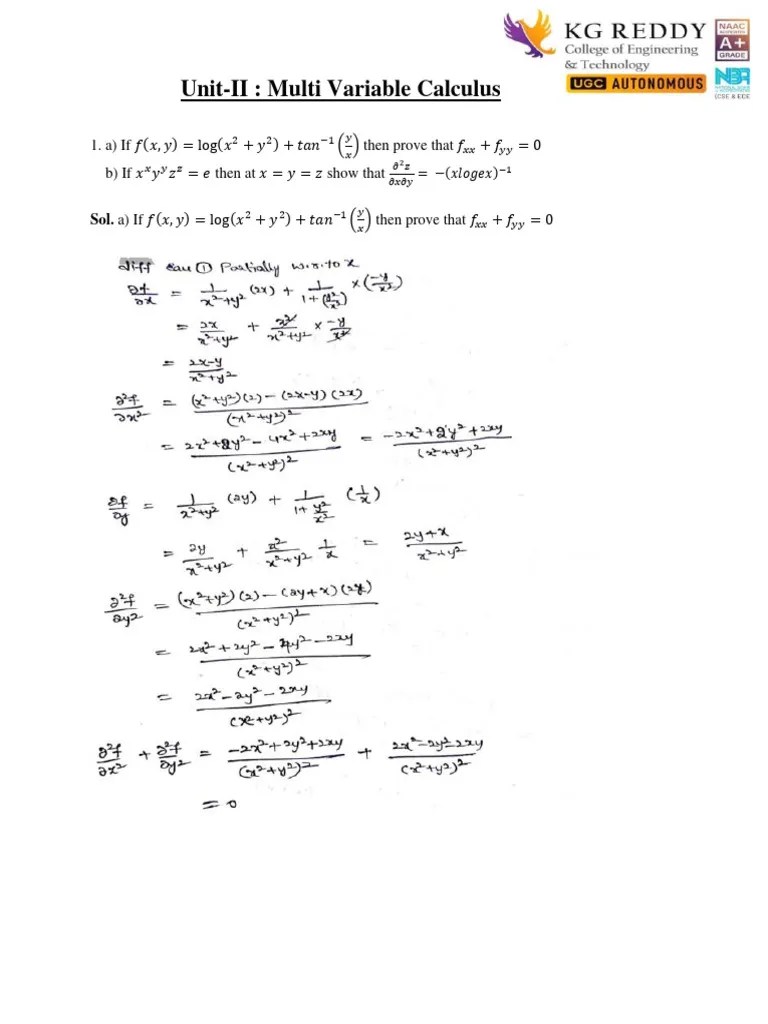 KG REDDY
College of Engineering
& Technology
UGC AUTONOMOUS
NAAC
A+
GRADE
NBA
(CSE & EEE)
Unit-II : Multi Variable Calculus
1. a) If f(x, y) = log(x² + y²) + tan⁻¹(y/x) then prove that fₓₓ + f_yy = 0
b) If xˣyʸzᶻ = e then at x = y = z show that ∂²z/∂x∂y = −(xlogex)⁻¹
Sol. a) If f(x, y) = log(x² + y²) + tan⁻¹(y/x) then prove that fₓₓ + f_yy = 0
diff equ ① Partially w.r.to x
∂f/∂x = 1/(x²+y²) (2x) + 1/(1+(y²/x²)) × (-y/x²)
= 2x/(x²+y²) + x²/(x²+y²) × -y/x²
= (2x-y)/(x²+y²)
∂²f/∂x² = ((x²+y²)(2) - (2x-y)(2x))/(x²+y²)²
= (2x²+2y²-4x²+2xy)/(x²+y²)² = (-2x²+2y²+2xy)/(x²+y²)²
∂f/∂y = 1/(x²+y²) (2y) + 1/(1+y²/x²) (1/x)
= 2y/(x²+y²) + x²/(x²+y²) 1/x = (2y+x)/(x²+y²)
∂²f/∂y2 = ((x²+y²)(2) - (2y+x)(2y))/(x²+y²)²
= (2x²+2y²-4y²-2xy)/(x²+y²)²
= (2x²-2y²-2xy)/(x²+y²)²
∂²f/∂x² + ∂²f/∂y2 = (-2x²+2y²+2xy)/(x²+y²)² + (2x²-2y²-2xy)/(x²+y²)²
= 0